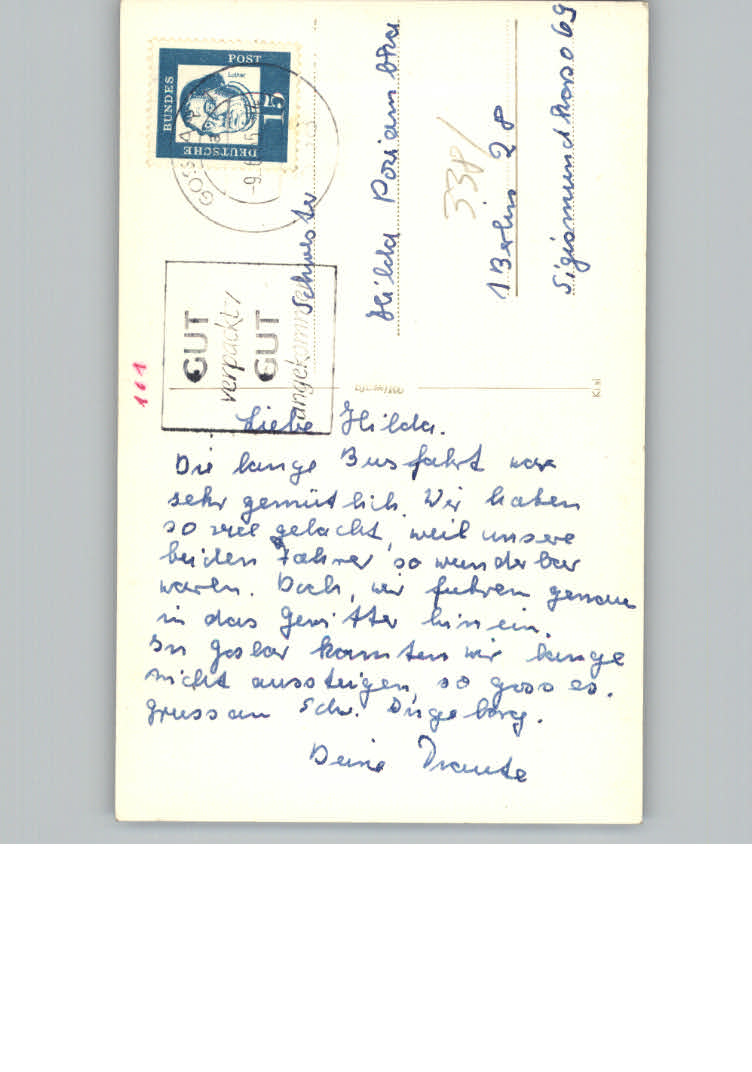 BUNDES
POST
DEUTSCHE
Luther
15
GOSLAR
-9.6
GUT
verpackt
GUT
angekommen
Schwester
Hilda
1 Berlin 28
Sigismundkorso 69
338/
101
Liebe Hilda.
Die lange Busfahrt war
sehr gemütlich. Wir haben
so viel gelacht, weil unsere
beiden Fahrer so wunderbar
waren. Doch, wir fuhren genau
in das Gewitter hinein.
In Goslar konnten wir lange
nicht aussteigen, so goss es.
Gruss an Schw. Ingeborg.
Deine Traute